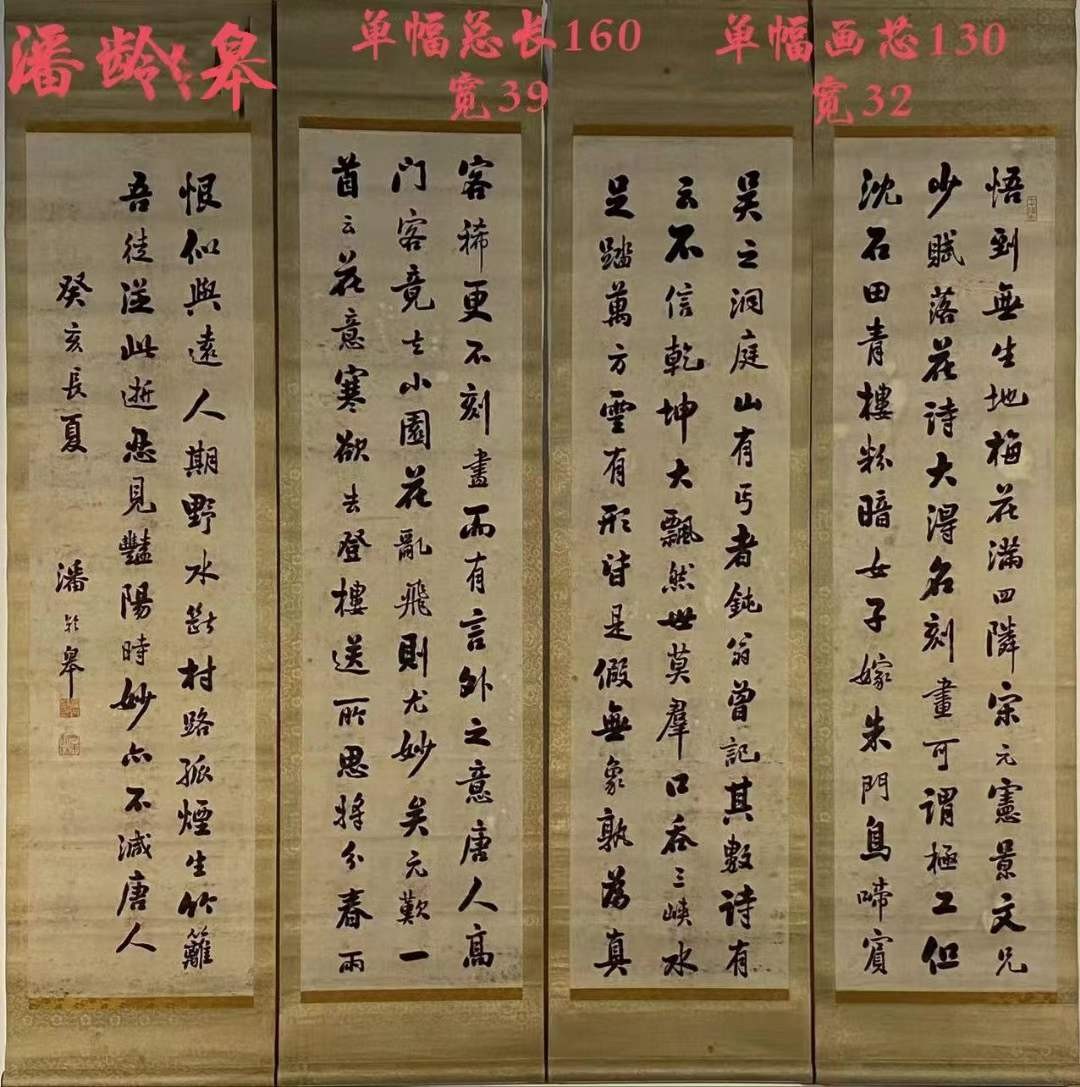 潘龄皋
单幅总长160
宽39
单幅画芯130
宽32
悟到無生地梅花滿四隣宋元憲景文兄
少賦落花诗大得名刻畫可謂極工但
沈石田青樓粉暗女子嫁朱門鳥啼賓
吴之洞庭山有丐者鈍翁曾記其數诗有
云不信乾坤大飄然世莫羣口吞三峡水
足踏萬方雲有形皆是假無象孰為真
客稀更不刻畫而有言外之意唐人高
门客竟去小園花亂飛則尤妙矣元歎一
首云花意寒欲去登樓送所思将分春雨
恨似與遠人期野水斷村路孤煙生竹籬
吾徒從此逝忍見豔陽時妙亦不減唐人
癸亥長夏 潘齡皋